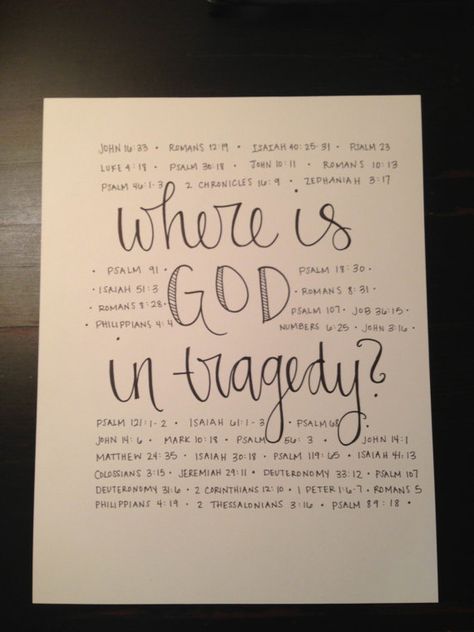 JOHN 16:33 • ROMANS 12:19 • ISAIAH 40:25-31 • PSALM 23
LUKE 4:18 • PSALM 30:18 • JOHN 10:11 • ROMANS 10:13
PSALM 46:1-3 • 2 CHRONICLES 16:9 • ZEPHANIAH 3:17
where is
• PSALM 91 •
• ISAIAH 51:3
• ROMANS 8:28•
• PHILIPPIANS 4:4
GOD
PSALM 18:30 •
• ROMANS 8:31 •
PSALM 107 • JOB 36:15 •
NUMBERS 6:25 • JOHN 3:16 •
in tragedy?
PSALM 121:1-2 • ISAIAH 61:1-3 • PSALM 68
JOHN 14:6 • MARK 10:18 • PSALM 56:3 • JOHN 14:1
MATTHEW 24:35 • ISAIAH 30:18 • PSALM 119:65 • ISAIAH 41:13
COLOSSIANS 3:15 • JEREMIAH 29:11 • DEUTERONOMY 33:12 • PSALM 107
DEUTERONOMY 31:6 • 2 CORINTHIANS 12:10 • 1 PETER 1:6-7 • ROMANS 5
PHILIPPIANS 4:19 • 2 THESSALONIANS 3:16 • PSALM 89:18 •